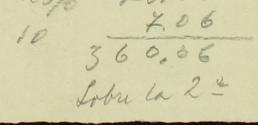 7.06
10
360.06
Sobre la 2ª